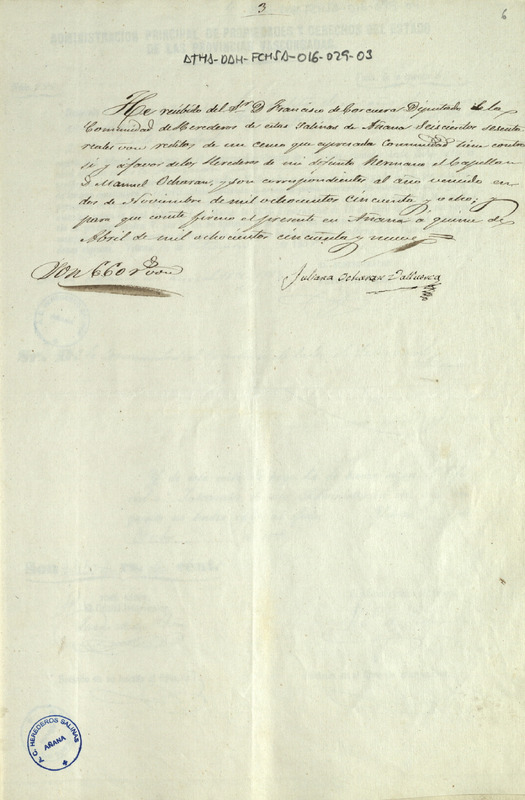 3
6
ATHA-DAH-FCHSA-016-029-03
He recibido del Sr. D Francisco de Corcuera Diputado de la
Comunidad de Herederos de estas Salinas de Añana Seiscientos sesenta
reales von reditos de un censo que espresada Comunidad tiene contra
si, y á favor de los Herederos de mi difunto hermano el Capellan
D. Manuel Ocharan, y son correspondientes al año vencido en
dos de Noviembre de mil ochocientos cincuenta y ocho, y
para que conste firmo el presente en Añana á quince de
Abril de mil ochocientos cincuenta y nueve
Son 660 rs von
Juliana Ocharan
A C. HEREDEROS SALINAS
AÑANA